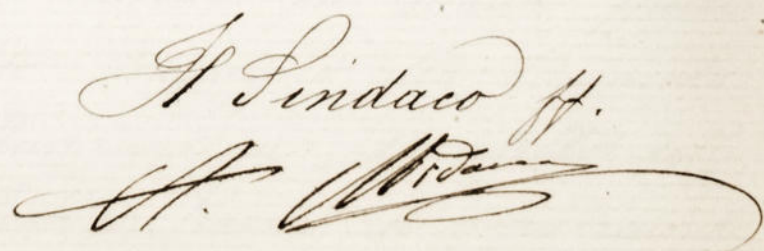 Il Sindaco ff.
A.